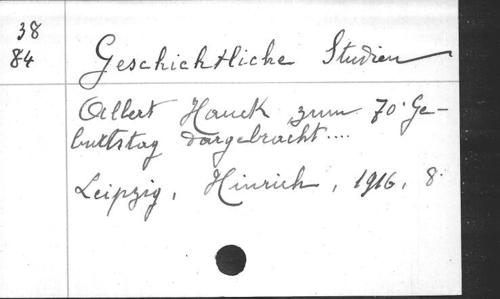 38
84
Geschichtliche Studien
Albert Hauck zum 70. Ge-
burtstag dargebracht....
Leipzig, Hinrich, 1916, 8.